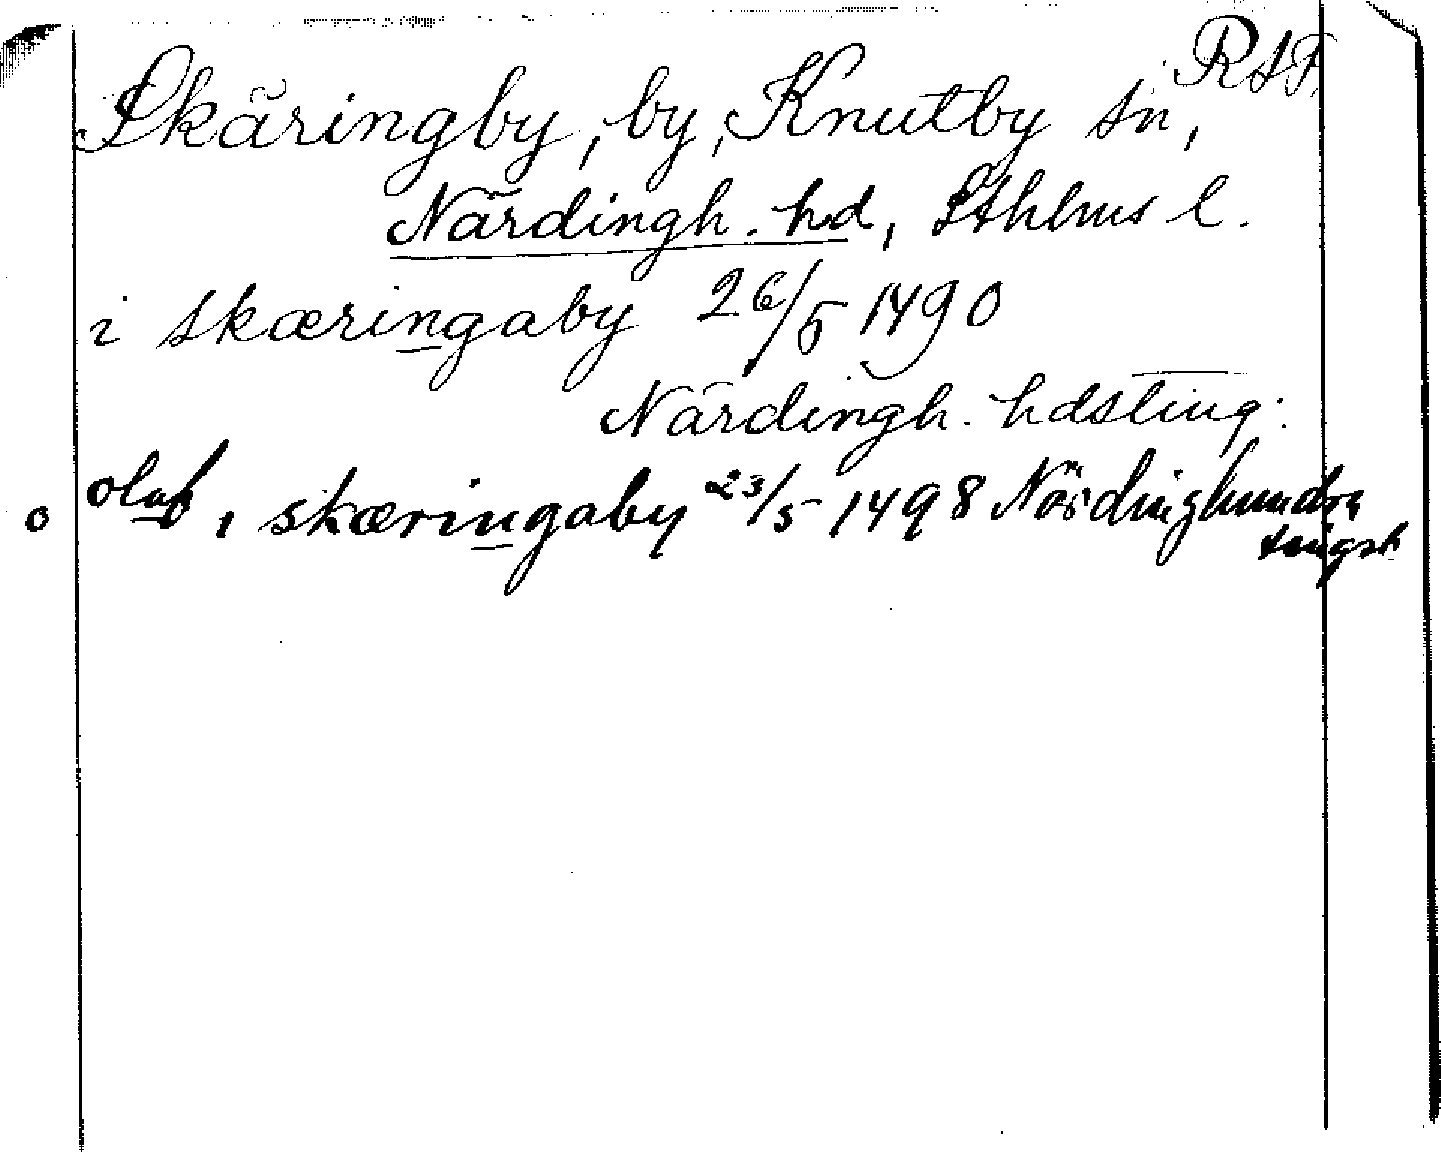 RAP.
Skäringby, by, Knutby sn,
Närdingh. hd, Sthlms l.
i skæringaby 26/5 1490
Närdingh. hdsting:
o olaf i skæringaby 23/5 1498 Närdinghundra
tingst